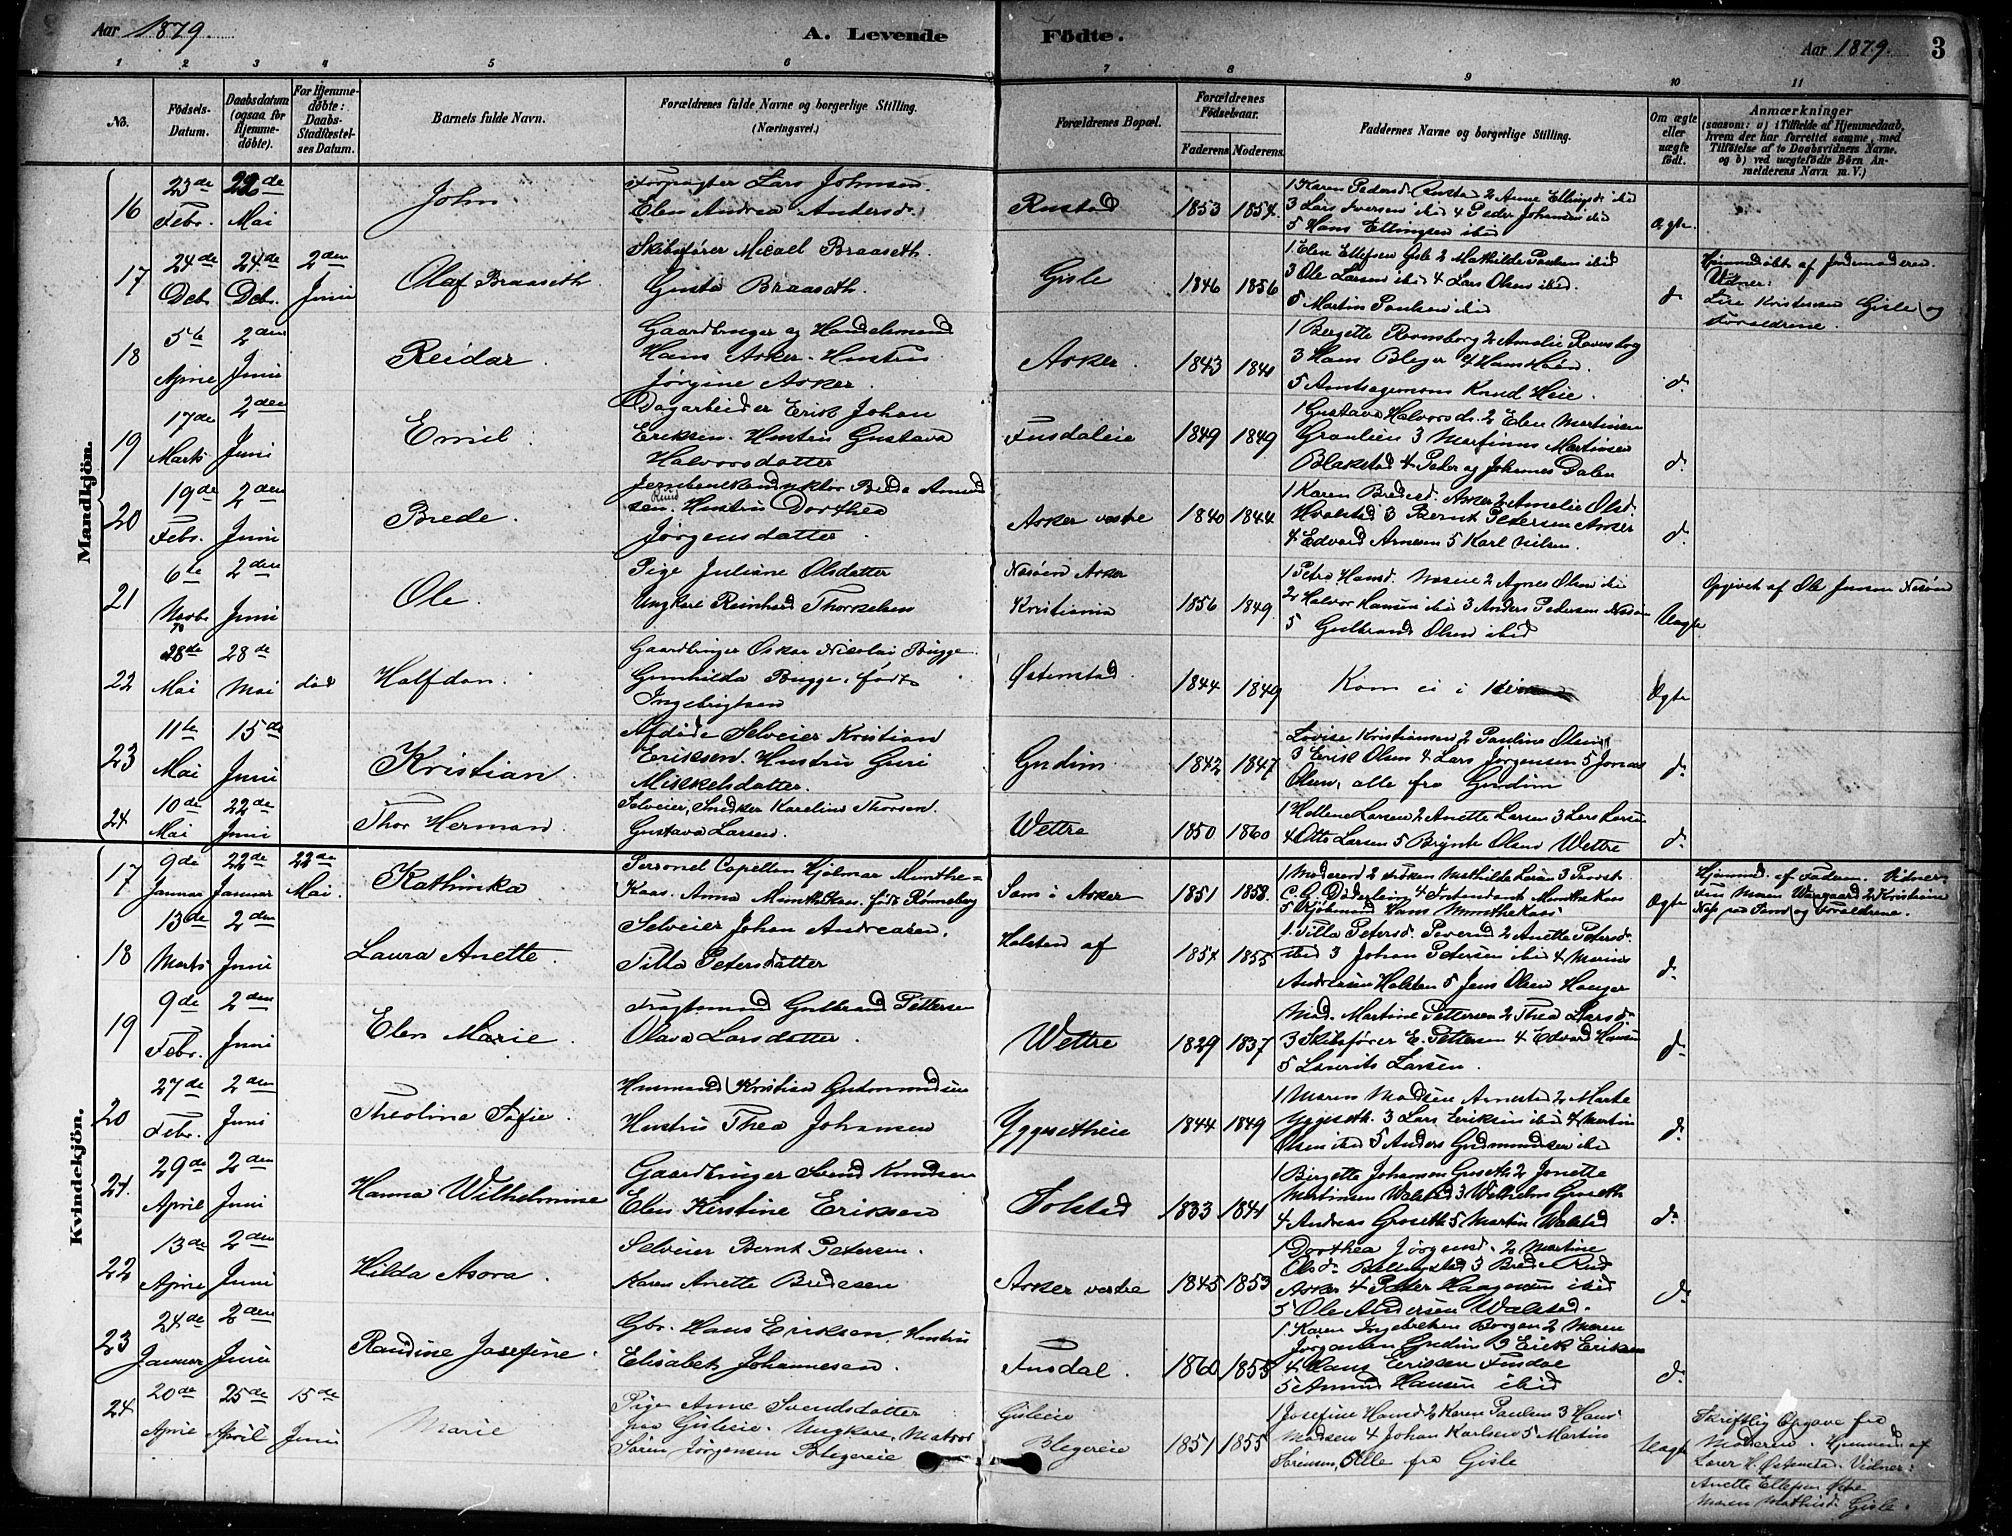 Aar 1879.
A. Levende Födte.
Aar 1879.
3
1 2 3 4 5 6 7 8 9 10 11
No.
Födsels-
Datum.
Daabsdatum
(ogsaa for
Hjemme-
döbte).
For Hjemme-
döbte:
Daabs-
Stadfæstel-
ses Datum.
Barnets fulde Navn.
Forældrenes fulde Navne og borgerlige Stilling.
(Næringsvei.)
Forældrenes Bopæl.
Forældrenes
Födselsaar.
Faderens
Moderens
Faddernes Navne og borgerlige Stilling.
Om ægte
eller
uægte
födt.
Anmærkninger
(saasom: a) i Tilfælde af Hjemmedaab,
hvem der har forrettet samme, med
Tilföielse af to Daabsvidners Navne.
og b) ved uægtefödte Börn An-
melderens Navn m. V.)
Mandkjön.
16
23de
Febr.
Mai
John
Forpagter Lars Johnsen.
Elen Andrea Andersd.
Rustad
1853 1854.
1 Karen Pedersd. Rustad 2 Anne Ellingsd. ibid
3 Lars Iversen ibid 4 Peder Johansen ibid
5 Hans Ellingsen ibid
Ægte.
17
24de
Debr.
24de
Debr.
2den
Juni
Olaf Braaseth
Skibsfører Micael Braaseth.
Gusta Braaseth.
Gisle
1846 1856
1 Elen Ellefsen Gisle 2 Mathilde Paulsen ibid
3 Ole Larsen ibid 4 Lars Olsen ibid.
5 Martin Paulsen ibid
d
Hjemmedøbt af Jordemoderen.
Vidner:
Lise Kristensen Gisle og
Forældrene.
18
5te
April
2den
Juni
Reidar
Gaardbruger og Handelsmand
Hans Asker. Hustru
Jørgine Asker.
Asker.
1843 1841
1 Bergette Ravnsborg 2 Amalie Ravnsborg
3 Hans Bleger 4 Hans Høn.
5 Amtsagronom Knud Heie.
d.
19
17de
Marts
2den
Juni
Emil
Dagarbeider Erik Johan
Eriksen. Hustru Gustava
Halvorsdatter
Fusdaleie
1849 1849
1 Gustava Halvorsd. 2 Elen Martinsen
Granlien 3 Martinus Martinsen
Blakstad 4 Peder og Johannes Dalen
d.
20
19de
Febr.
2den
Juni
Brede.
Jernbanekonduktør Brede Amund
sen. Rud Hustru Dorthea
Jørgensdatter.
Asker vestre
1840 1844
1 Karen Bredesd. Asker 2 Amalie Olsd.
Hvalstad 3 Bernt Petersen Asker
4 Edvard Arnesen 5 Karl Nilsen.
d.
21
6te
Novbr.
2den
Juni
Ole.
Pige Juliane Olsdatter
Ungkarl Reinhard Thorkelsen
Nesøen Asker
Kristiania
1856 1849.
1 Petra Hansd. Nesøen 2 Agnes Olsen ibid
2 Halvor Hansen ibid 3 Anders Pedersen Nesøen
5 Gulbrand Olsen ibid
Uægte
Opgivet af Ole Jensen Nesøen
22
28de
Mai
28de
Mai
død
Halfdan.
Gaardbruger Oskar Nicolai Bugge.
Gunhilda Bugge, født
Ingebrigtsen
Østenstad
1844 1849
Kom ei i Kirken
Ægte
23
11te
Mai
15de
Juni
Kristian
Afdøde Selveier Kristian
Eriksen. Hustru Guri
Mikkelsdatter.
Gudim
1842 1847
Lovise Kristiansen 2 Pauline Olsen
3 Erik Olsen 4 Lars Jørgensen 5 Jonas
Olsen, alle fra Gudim
d.
24
10de
Mai
22de
Juni
Thor Herman
Selveier, Snedker Karelius Thorsen.
Gustava Larsen.
Wettre
1850 1860
1 Hellene Larsen 2 Anette Larsen 3 Lars Larsen
4 Otto Larsen 5 Brynte Olsen Wettre
d.
Kvindekjön.
17
9de
Januar
22de
Januar
22de
Mai.
Kathinka
Personel Capellan Hjalmar Munthe-
Kaas. Anna Munthe Kaas. født Rønneberg
Sem i Asker
1851 1858.
1 Moderen 2 Frøken Mathilde Lorén 3 Provst
4 Intendant Munthe Kaas
5 Kjøbmand Hans Munthe Kaas
Ægte
Hjemmed. af Faderen. Vidner:
og Forældrene.
18
13de
Marts
2den
Juni
Laura Anette.
Selveier Johan Andreasen.
Tilla Petersdatter
Holsten af
1854 1855
1. Tilla Petersd. Poverud 2 Anette Petersd.
ibid 3 Johan Petersen ibid 4 Marius
Andresen Holsten 5 Jens Olsen Hauger
d.
19
9de
Febr.
2den
Juni
Elen Marie.
Fragtemand Gulbrand Pettersen
Olava Larsdatter.
Wettre
1829 1837
Mad. Martine Pettersen 2 Thea Larsd.
3 Skibsfører E. Pettersen 4 Edvard Hansen
5 Laurits Larsen.
d.
20
27de
Febr.
2den
Juni
Theoline Sofie.
Husmand Kristian Gudmundsen
Hustru Thea Johansen
Yggesetheie
1844 1849
1 Maren Madsen Arnestad 2 Marte
Yggeseth. 3 Lars Eriksen ibid 4 Martin
Olsen ibid 5 Anders Gudmundsen ibid
d.
21.
29de
April
2den
Juni
Hanna Wilhelmine
Gaardbruger Svend Knudsen
Elen Kirstine Eriksen
Solstad
1833 1841
1 Birgette Johansen Groseth 2 Jonette
Martinsen Walstad 3 Wilhelm Groseth
4 Andreas Groseth 5 Martin Walstad
d.
22
13de
April
2den
Juni
Hilda Asora.
Selveier Bernt Petersen.
Karen Anette Bredesen
Asker vestre
1845 1853
1 Dorthea Jørgensd. 2 Martine
Olsd. Bellingstad 3 Brede Rud
Asker 4 Peter Haagensen ibid
5 Ole Andersen Walstad.
d.
23
24de
Januar
2den
Juni
Randine Josefine.
Gbr. Hans Eriksen. Hustru
Elisabet Johannesen.
Fusdal.
1860 1855
1. Karen Ingebretsen Borgen 2 Maren
Jørgensen Gudim 3 Erik Eriksen
4 Hans Erissen Fusdal
5 Amund Hansen ibid
d.
24
20de
April
25de
April
15de
Juni
Marie
Pige Anne Svendsdatter
fra Gisleie. Ungkarl, Matros
Søren Jørgensen Blegereie
Gisleie
Blegereie
1851 1855
1 Josefine Hansd 2 Karen Paulsen 3 Hans
Madsen 4 Johan Karlsen 5 Martin
Sørensen, Alle fra Gisle
Uægte
Skriftlig Opgave fra
Moderen. Hjemmed. af
Lærer H. Østenstad. Vidner:
Anette Ellefsen
Maren Mathisd. Gisle.